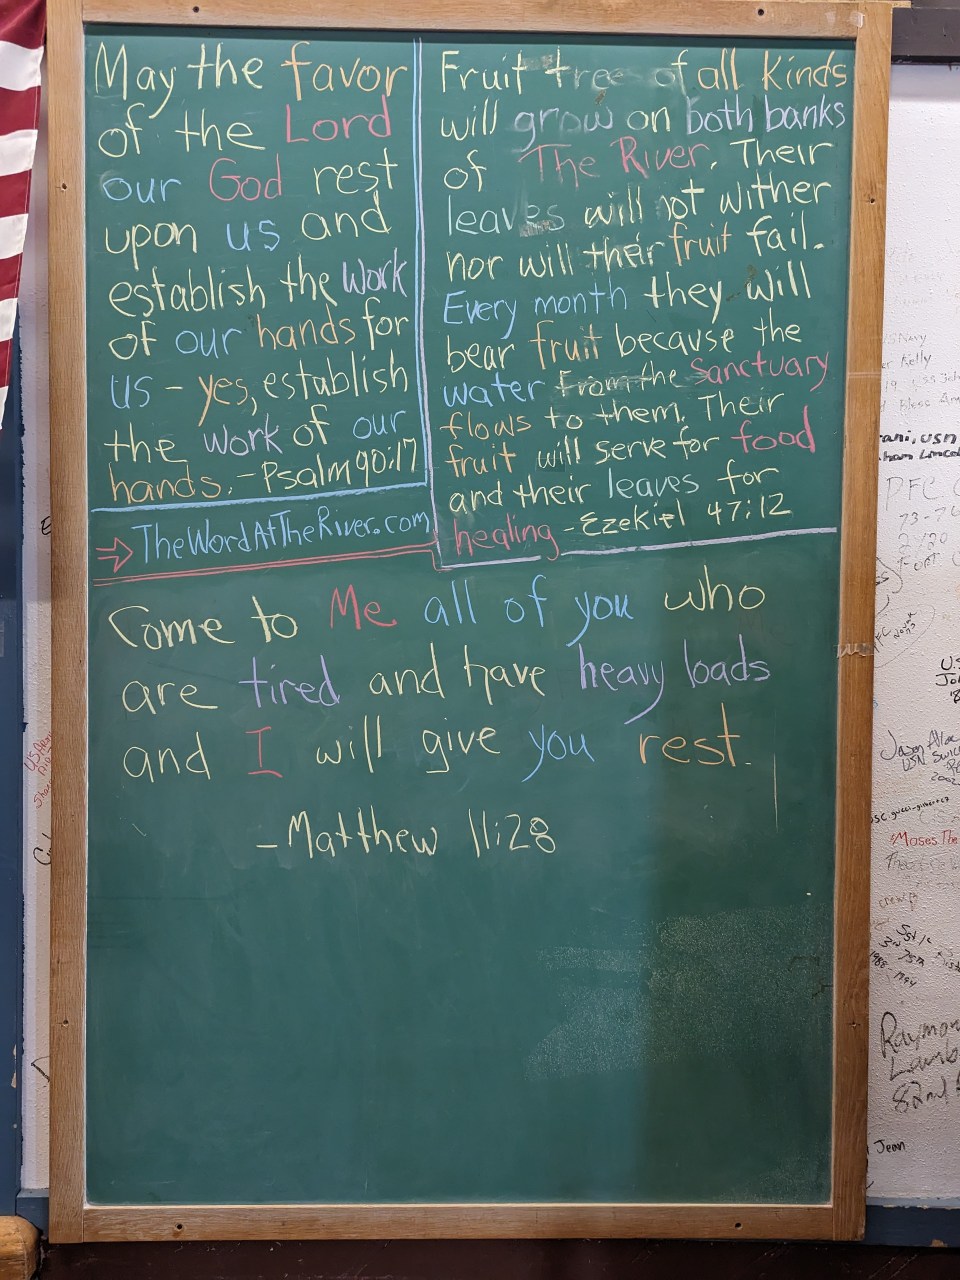 May the favor
of the Lord
our God rest
upon us and
establish the work
of our hands for
us - yes, establish
the work of our
hands. - Psalm 90:17
Fruit tree of all kinds
will grow on both banks
of The River. Their
leaves will not wither
nor will their fruit fail.
Every month they will
bear fruit because the
water from the Sanctuary
flows to them. Their
fruit will serve for food
and their leaves for
healing - Ezekiel 47:12
→ TheWordAtTheRiver.com
Come to Me all of you who
are tired and have heavy loads
and I will give you rest.
- Matthew 11:28
Kelly
Bless
USN
PFC
73-76
2/20
Jason
USN
2002
Moses The
1988 - 1994
Raymon
Lamb
82nd
Jean